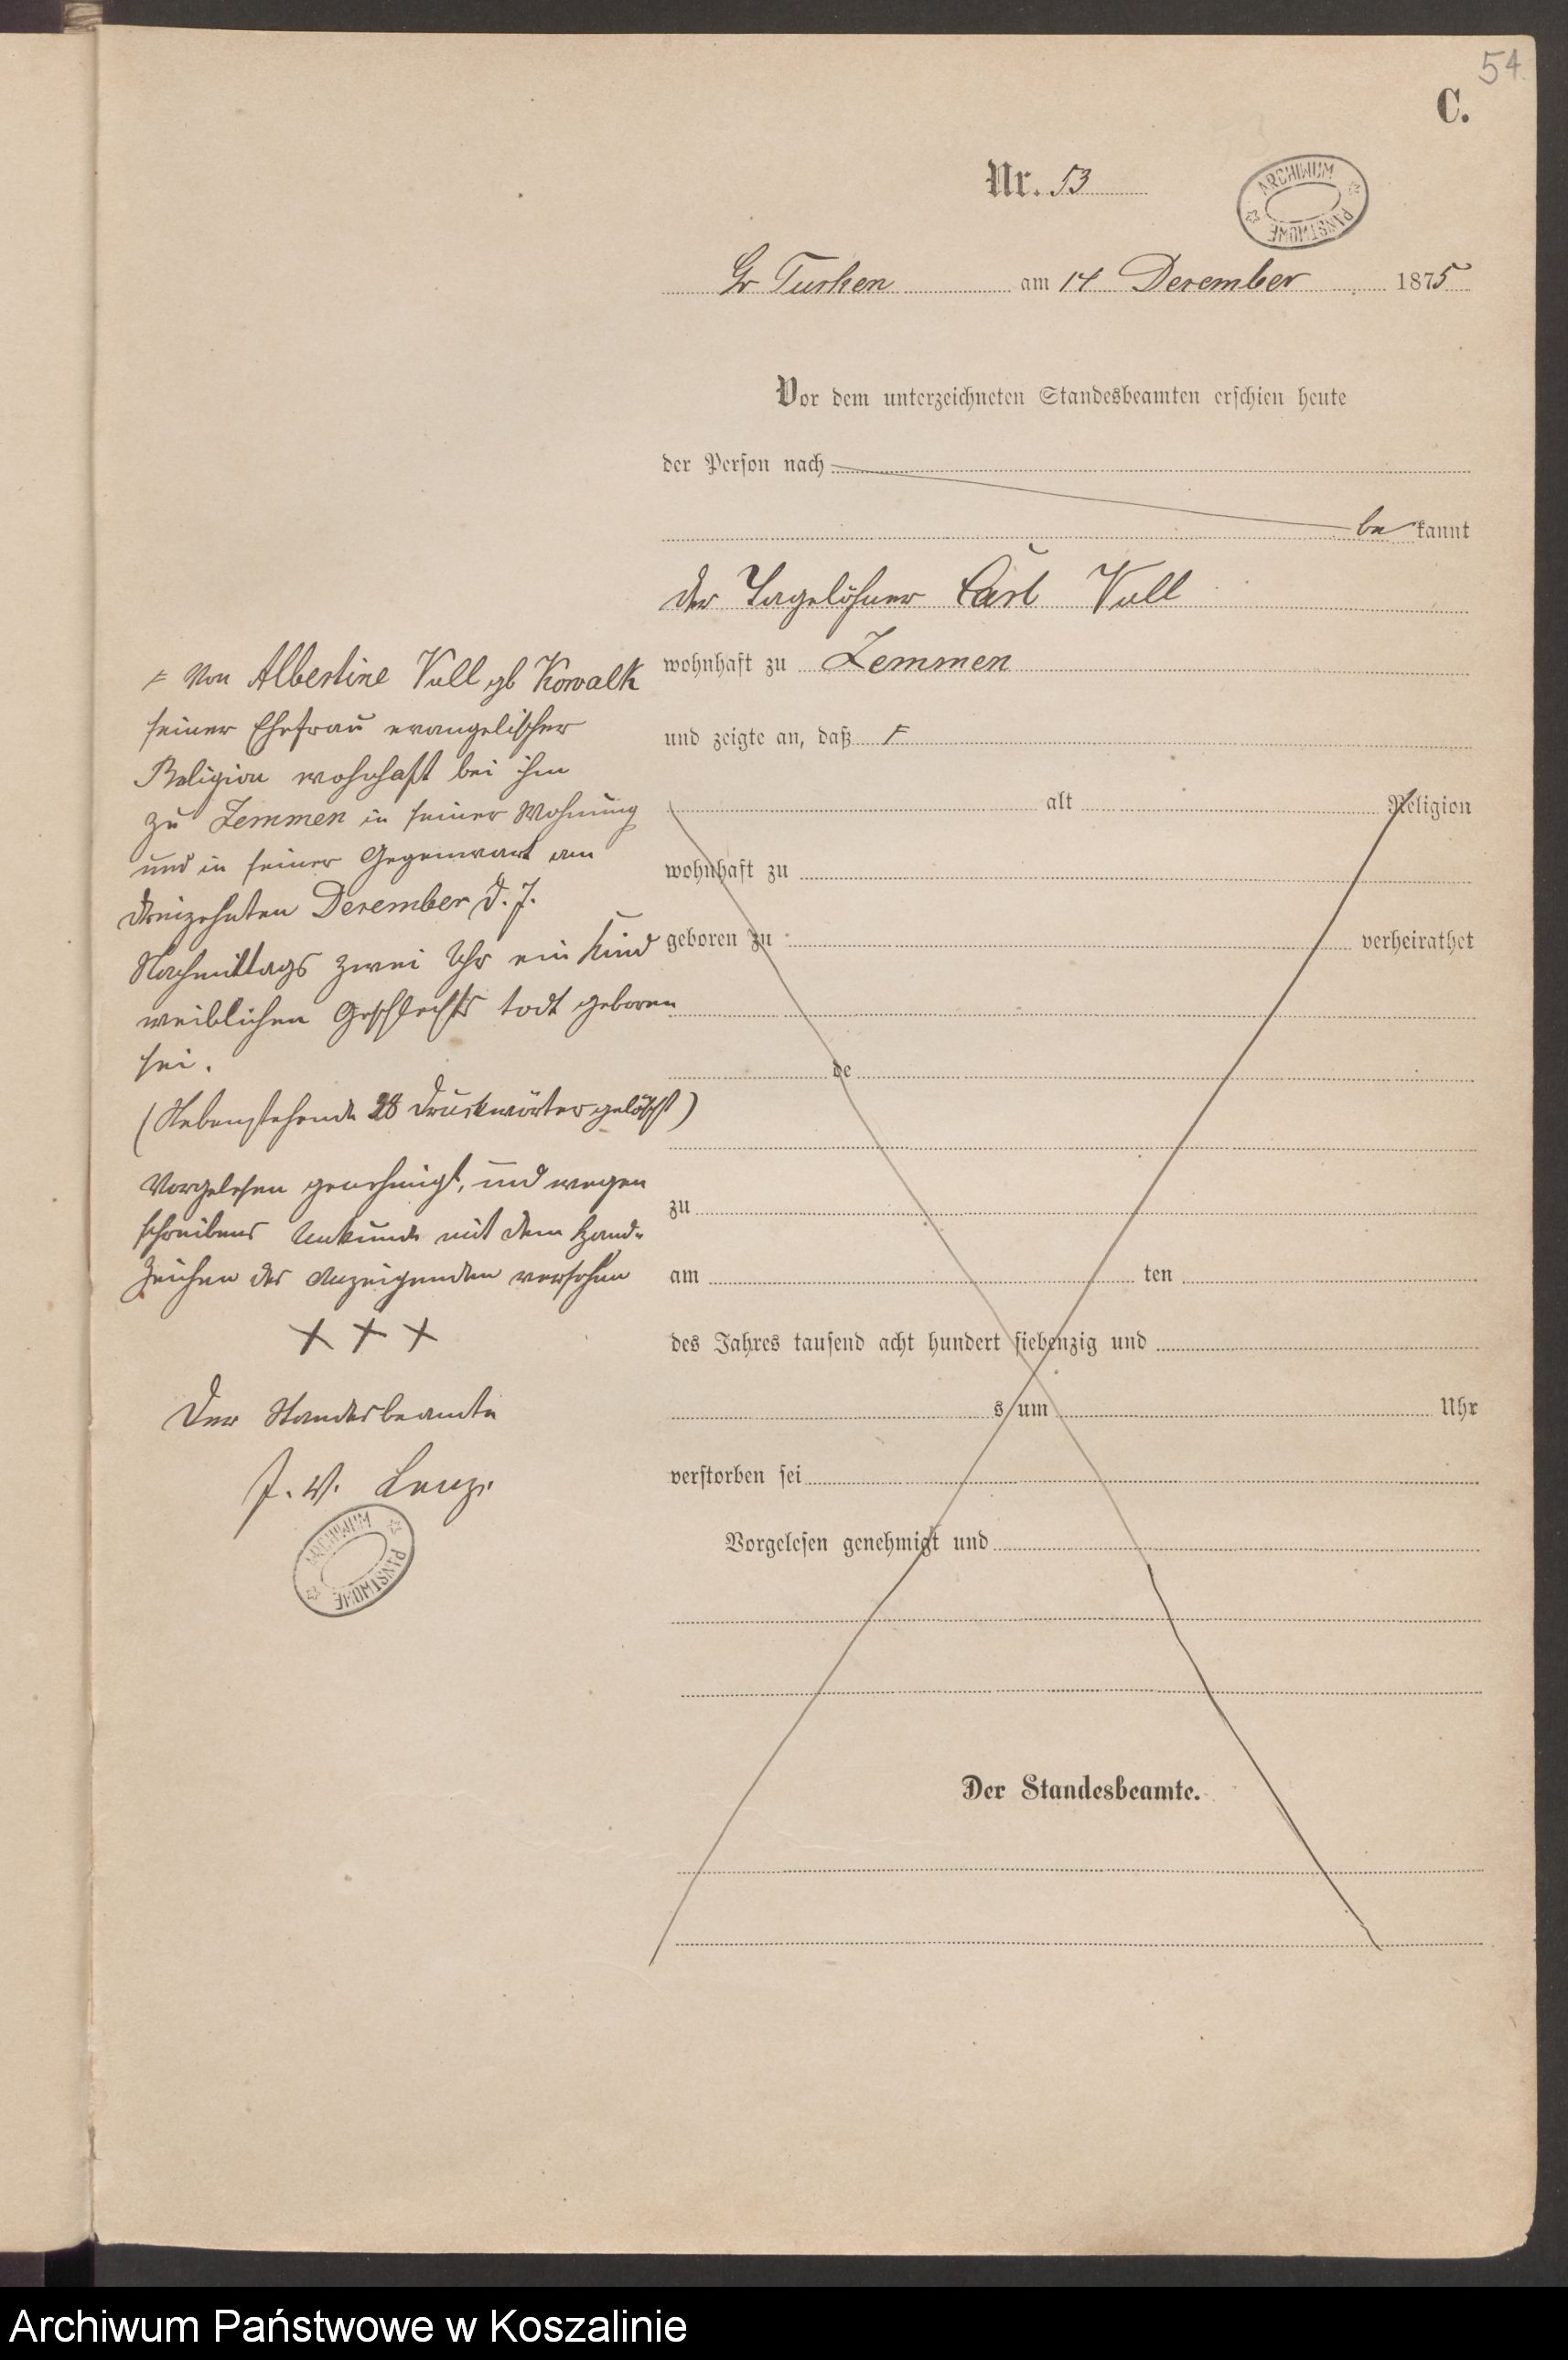 54.
C.
Nr. 53
ARCHIWUM PAŃSTWOWE
Gr Tuchen am 14 December 1875
Vor dem unterzeichneten Standesbeamten erschien heute
der Person nach
be kannt
der Tagelöhner Carl Voll
wohnhaft zu Zemmen
und zeigte an, daß F
F von Albertine Voll gb Kowalk
seiner Ehefrau evangelischer
Religion wohnhaft bei ihm
zu Zemmen in seiner Wohnung
und in seiner Gegenwart am
dreizehnten December d. J.
Nachmittags zwei Uhr ein Kind
weiblichen Geschlechts todt geboren
sei.
(Nebenstehende 28 Druckwörter gelöscht)
Vorgelesen genehmigt, und wegen
schreibens Unkunde mit dem Hand-
zeichen des Anzeigenden versehen
+ + +
Der Standesbeamte
J. W. Lenz.
ARCHIWUM PAŃSTWOWE
alt Religion
wohnhaft zu
geboren zu verheirathet
de
zu
am ten
des Jahres tausend acht hundert siebenzig und
s um Uhr
verstorben sei
Vorgelesen genehmigt und
Der Standesbeamte.
Archiwum Państwowe w Koszalinie